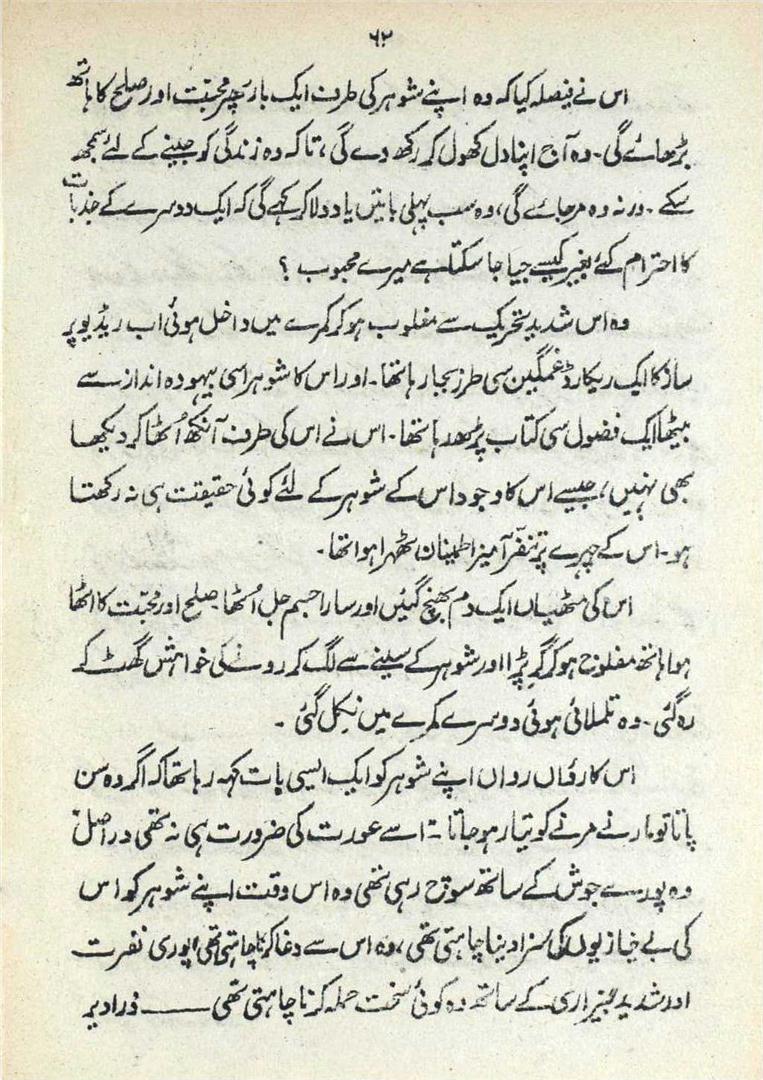 ۶۲
اس نے فیصلہ کیا کہ وہ اپنے شوہر کی طرف ایک بار پھر محبّت اور صلح کا ہاتھ
بڑھائے گی۔ وہ آج اپنا دل کھول کر رکھ دے گی، تاکہ وہ زندگی کو جینے کے لئے سمجھ
سکے۔ ورنہ وہ مر جائے گی، وہ سب پہلی باتیں یاد دلا کر کہے گی کہ ایک دوسرے کے جذبات
کا احترام کئے بغیر کیسے جیا جا سکتا ہے میرے محبوب ؟
وہ اس شدید تحریک سے مغلوب ہو کر کمرے میں داخل ہوئی اب ریڈیو پر
ساز کا ایک ریکارڈ غمگین سی طرز بجا رہا تھا۔ اور اس کا شوہر اسی بیہودہ انداز سے
بیٹھا ایک فضول سی کتاب پڑھ رہا تھا۔ اس نے اس کی طرف آنکھ اُٹھا کر دیکھا
بھی نہیں، جیسے اس کا وجود اس کے شوہر کے لئے کوئی حقیقت ہی نہ رکھتا
ہو۔ اس کے چہرے پر تنفّر آمیز اطمینان ٹھہرا ہوا تھا۔
اس کی مٹھیاں ایک دم بھنچ گئیں اور سارا جسم جل اُٹھا۔ صلح اور محبّت کا اٹھا
ہوا ہاتھ مفلوج ہو کر گر پڑا اور شوہر کے سینے سے لگ کر رونے کی خواہش گھٹ کے
رہ گئی۔ وہ تلملائی ہوئی دوسرے کمرے میں نکل گئی ۔
اس کا رواں رواں اپنے شوہر کو ایک ایسی بات کہہ رہا تھا کہ اگر وہ سن
پاتا تو مارنے مرنے کو تیار ہو جاتا ۔ اسے عورت کی ضرورت ہی نہ تھی دراصل
وہ پورے جوش کے ساتھ سوچ رہی تھی وہ اس وقت اپنے شوہر کو اس
کی بے نیازیوں کی سزا دینا چاہتی تھی، وہ اس سے دغا کرنا چاہتی تھی، پوری نفرت
اور شدید بیزاری کے ساتھ وہ کوئی سخت حملہ کرنا چاہتی تھی ـــــ ذرا دیر